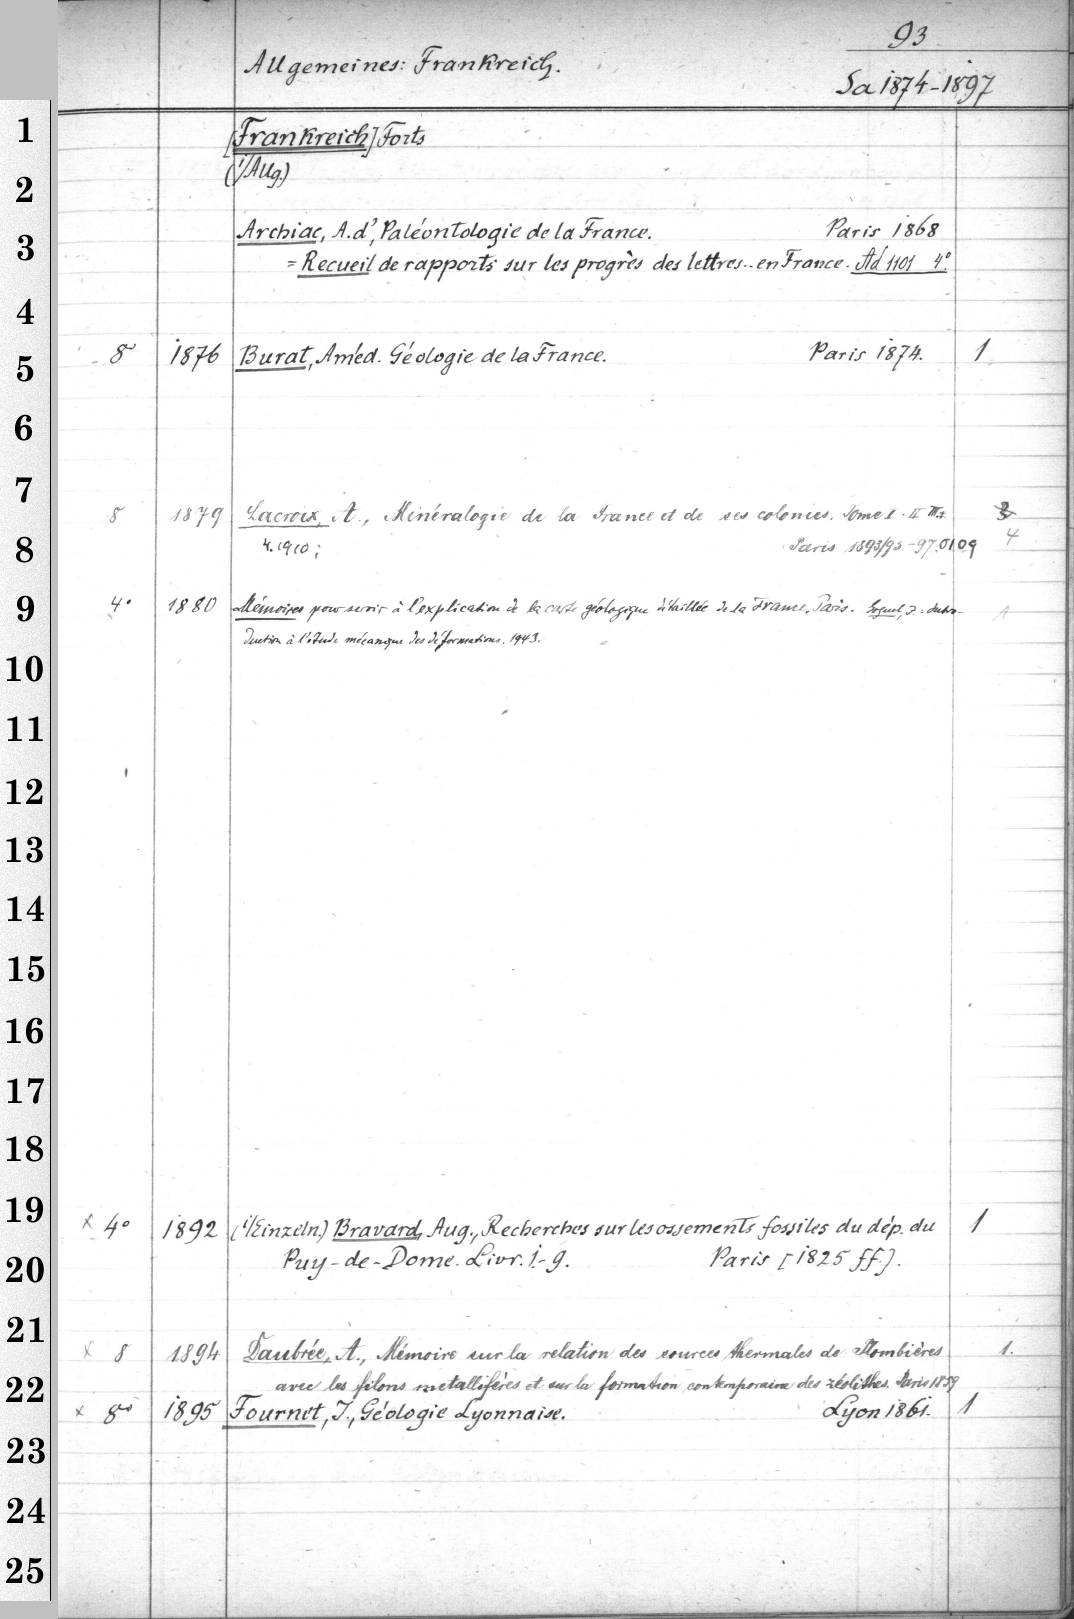 93
Allgemeines: Frankreich.
Sa 1874-1897
[Frankreich] Forts
(i/Allg.)
Archiac, A. d', Paléontologie de la France. Paris 1868
= Recueil de rapports sur les progrès des lettres.. en France. Ad 1101 4°.
8° 1876 Burat, Améd. Géologie de la France. Paris 1874. 1
8 1879 Lacroix, A., Minéralogie de la France et de ses colonies. Tome I. II. III. 3
4. 1910; Paris 1893/95-97.01.09 4
4° 1880 Mémoires pour servir à l'explication de la carte géologique détaillée de la France. Paris. Goguel, J: Intro- 1
duction à l'étude mécanique des déformations. 1943.
x 4° 1892 (i/Einzeln.) Bravard, Aug., Recherches sur les ossements fossiles du dép. du 1
Puy-de-Dome. Livr. 1.-9. Paris [1825 ff.].
x 8 1894 Daubrée, A., Mémoire sur la relation des sources thermales de Plombières 1.
avec les filons metallifères et sur la formation contemporaine des zéolithes. Paris 1859
x 8° 1895 Fournet, J., Géologie Lyonnaise. Lyon 1861. 1
1
2
3
4
5
6
7
8
9
10
11
12
13
14
15
16
17
18
19
20
21
22
23
24
25